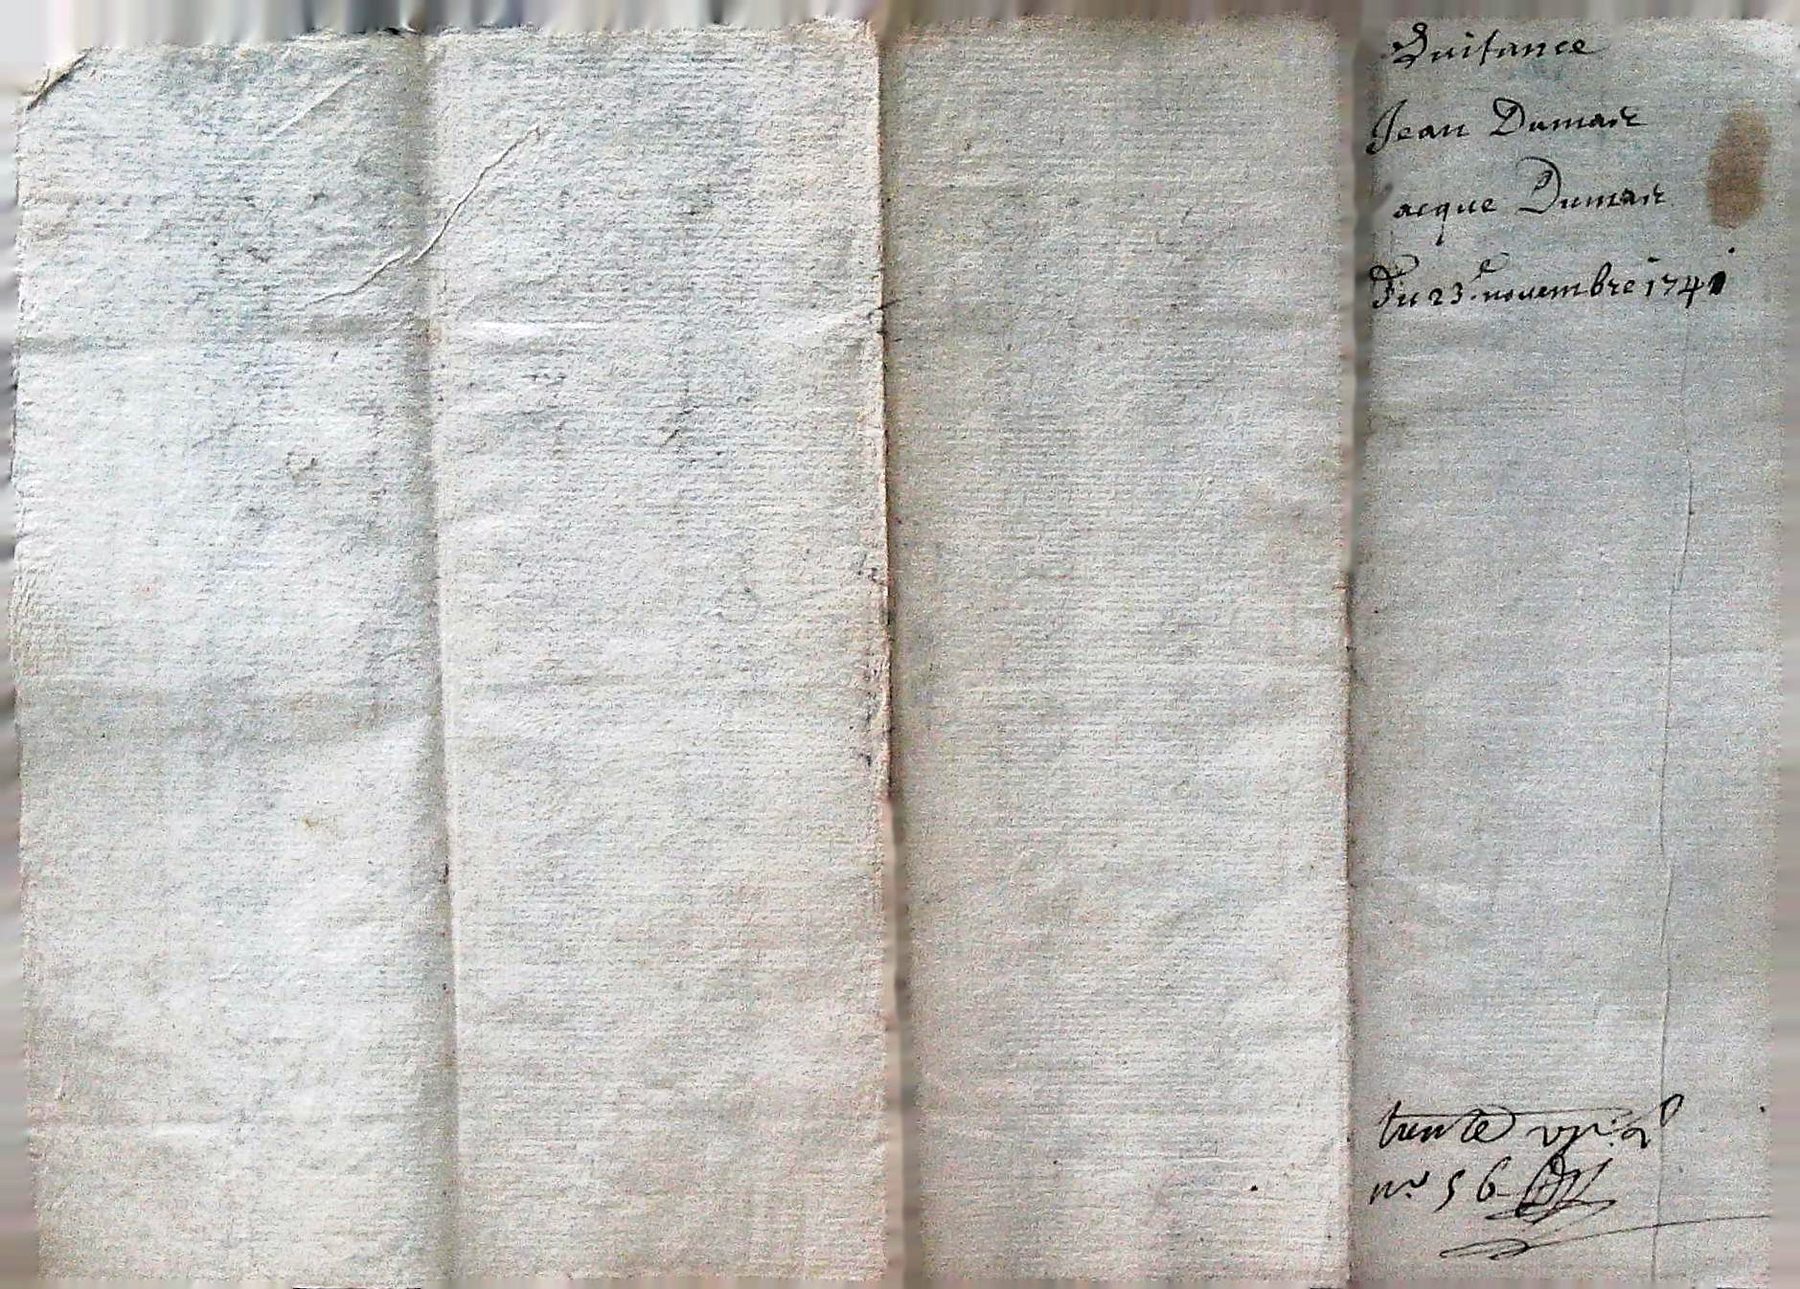 Quitance
Jean Dumas
Jacque Dumas
Du 23.e novembre 1741
trente
no. 56